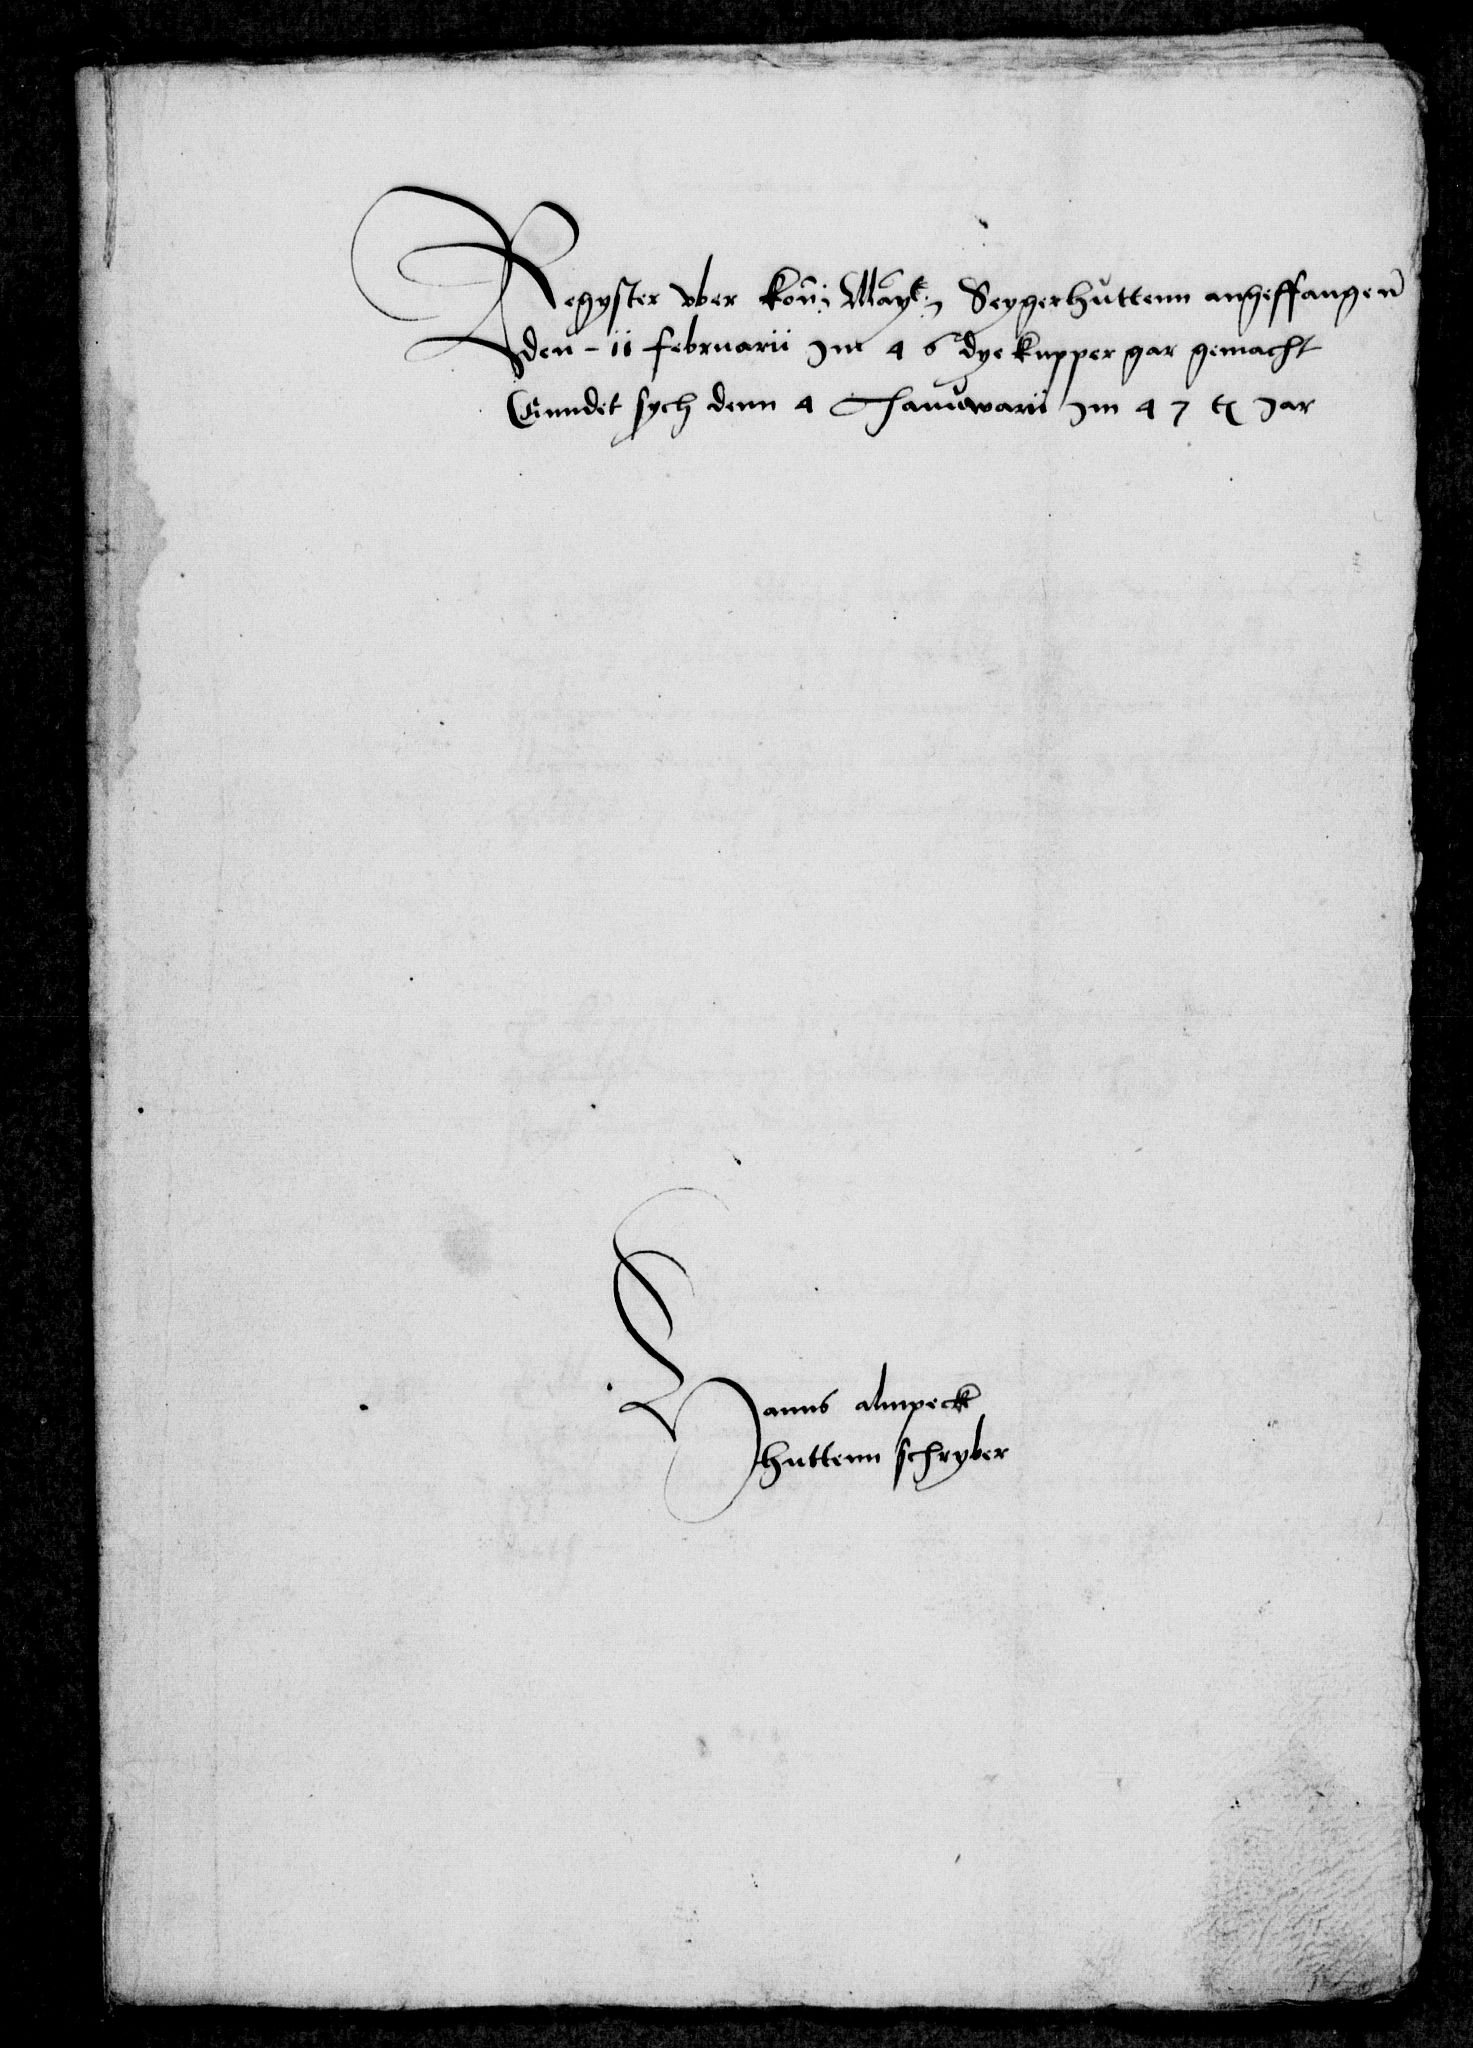 Regyster vber kön: Mayt: Seygerhüttenn angheffangen
den - 11 februarii Im 46 dye kupper gar gemacht
Enndet sych denn 4 Januwarii Im 47 tt Jar
Hanns almpeck
huttenn schryber